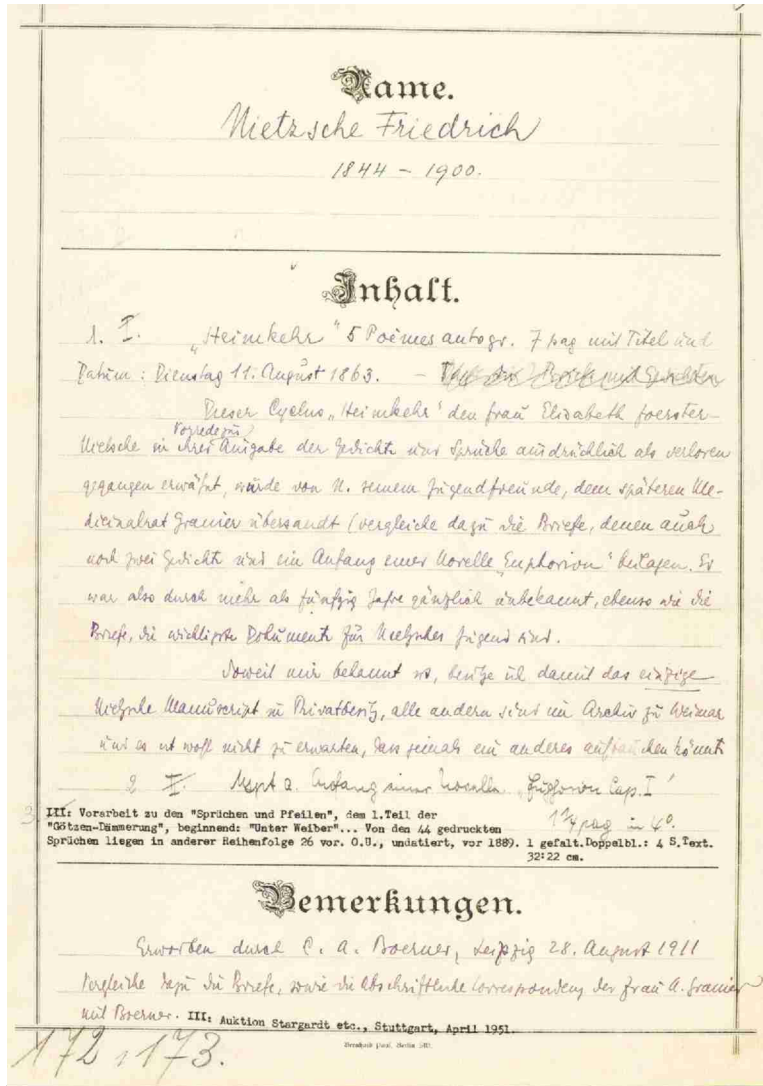 Name.
Nietzsche Friedrich
1844 – 1900.
Inhalt.
1. I. „Heimkehr" 5 Poëmes autogr. 7 pag mit Titel und
Datum: Dienstag 11. August 1863. –
Dieser Cyclus „Heimkehr" den Frau Elisabeth Foerster-
Vorrede zu
Nietzsche in ihrer Ausgabe der Gedichte und Sprüche ausdrücklich als verloren
gegangen erwähnt, wurde von N. seinem Jugendfreunde, dem späteren Me-
dicinalrat Granier übersandt (vergleiche dazu die Briefe, denen auch
noch zwei Gedichte und ein Anfang einer Novelle „Euphorion" beilagen. Er
war also durch mehr als fünfzig Jahre gänzlich unbekannt, ebenso wie die
Briefe, die wichtigste Dokumente für Nietzsches Jugend sind.
Soweit mir bekannt ist, besitze ich damit das einzige
Nietzsche Manuscript in Privatbesitz, alle andern sind im Archiv zu Weimar
und es ist wohl nicht zu erwarten, dass jemals ein anderes auftauchen könnte
2 II. Mspt a. Anfang einer Novelle. „Euphorion Cap. I"
1 1/4 pag in 4°.
3 III: Vorarbeit zu den "Sprüchen und Pfeilen", dem 1.Teil der
"Götzen-Dämmerung", beginnend: "Unter Weiber"... Von den 44 gedruckten
Sprüchen liegen in anderer Reihenfolge 26 vor. O.U., undatiert, vor 1889. 1 gefalt.Doppelbl.: 4 S.Text.
32:22 cm.
Bemerkungen.
Erworben durch C. A. Boerner, Leipzig 28. August 1911
Vergleiche dazu die Briefe, sowie die abschriftliche Correspondenz der Frau A. Granier
mit Boerner. III: Auktion Stargardt etc., Stuttgart, April 1951.
172, 173.